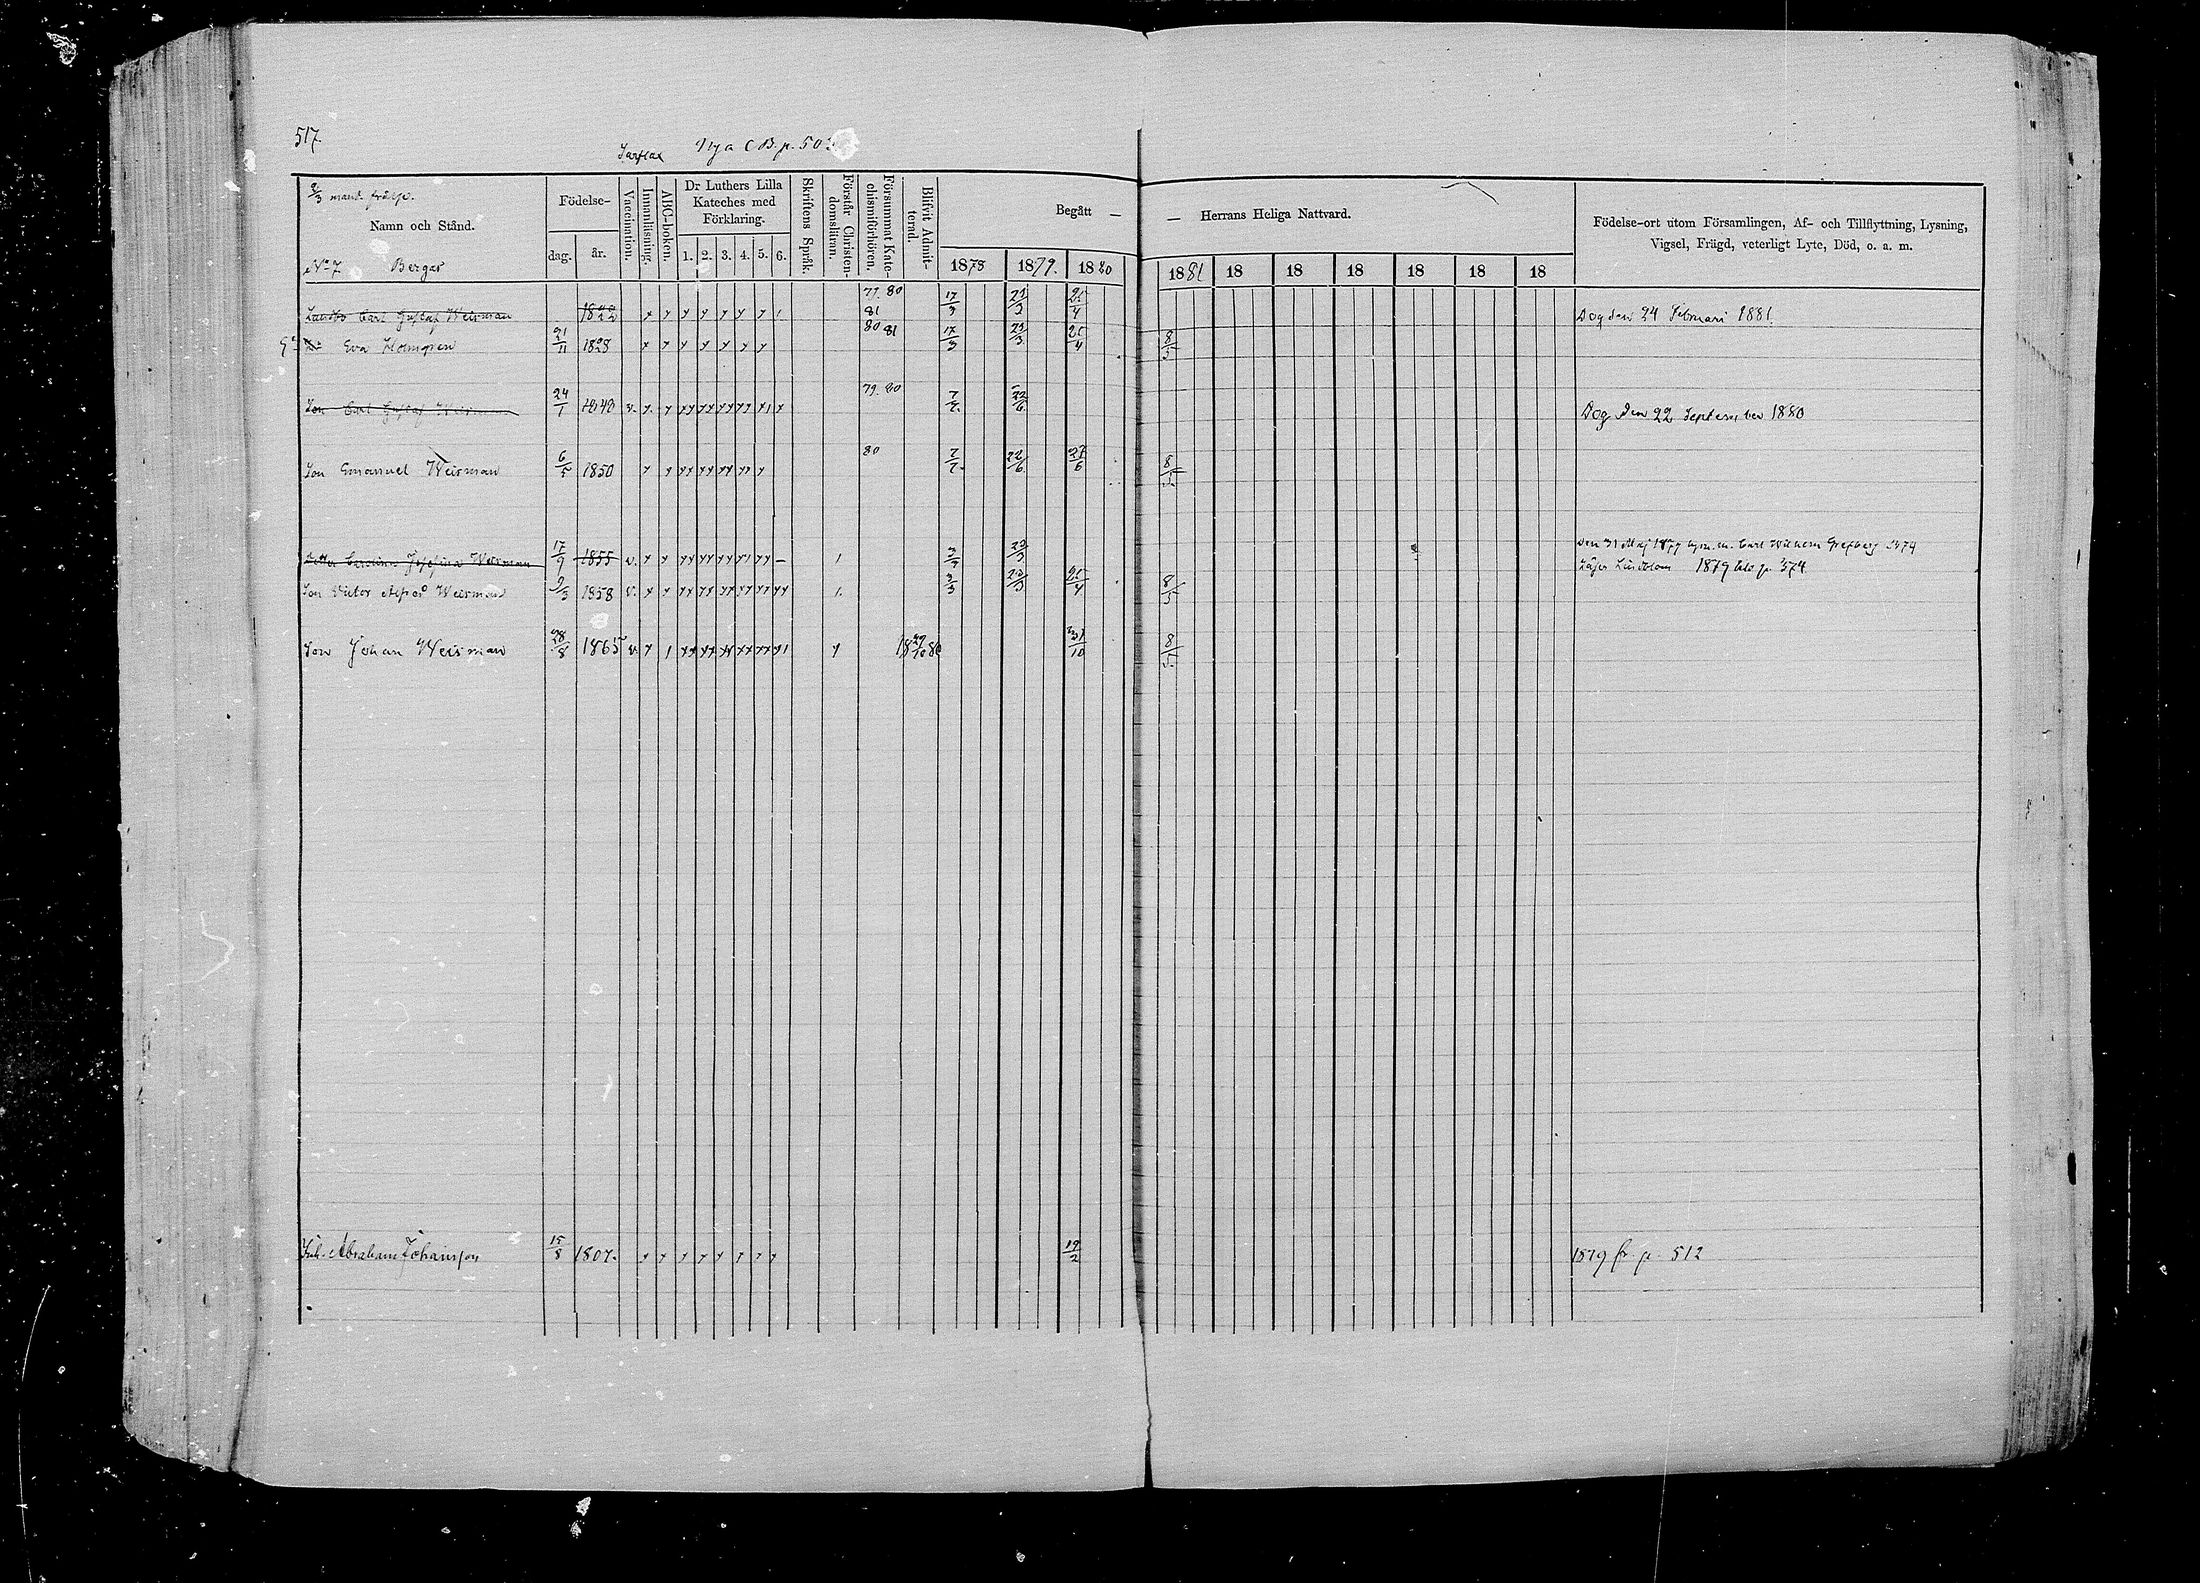 517.
Sarflax Nya C B. p. 50
2/3 mant. frälse.
Namn och Stånd.
No 7 Bergar
Födelse-
dag. år.
Vaccination.
Innanläsning.
ABC-boken.
Dr Luthers Lilla Kateches med Förklaring.
1. 2. 3. 4. 5. 6.
Skriftens Språk.
Förstår Christendomsläran.
Försummat Katechismiförhören.
Blifvit Admitterad.
Begått — — Herrans Heliga Nattvard.
1878 1879. 1880 1881 18 18 18 18 18 18
Födelse-ort utom Församlingen, Af- och Tillflyttning, Lysning,
Vigsel, Frägd, veterligt Lyte, Död, o. a. m.
Carl Gustaf Weisman 1822 79. 80 81 17/3 23/3 25/4 Dog den 24 Februari 1881.
Eva Holmgren 21/11 1828 80 81 17/3 23/3 25/4 8/5
Son Carl Gustaf Weisman 24/1 1848 v. 79. 80 7/7. 22/6 Dog den 22 September 1880
Son Emanuel Weisman 6/5 1850 80 7/7. 22/6 27/6 8/5
Dotter Carolina Josefina Weisman 17/9 1855 v. 3/3 23/3 den 31 Maj 1877 lyst m. Carl Wilhelm Grefberg
Lindblom 1879 till p. 374
Son Victor Alfred Weisman 9/3 1858 v. 3/3 23/3 25/4 8/5
Son Johan Weisman 28/8 1865 v. 31/10 8/5
Abraham Johansson 15/8 1807. 19/2 1879 fr. p. 512